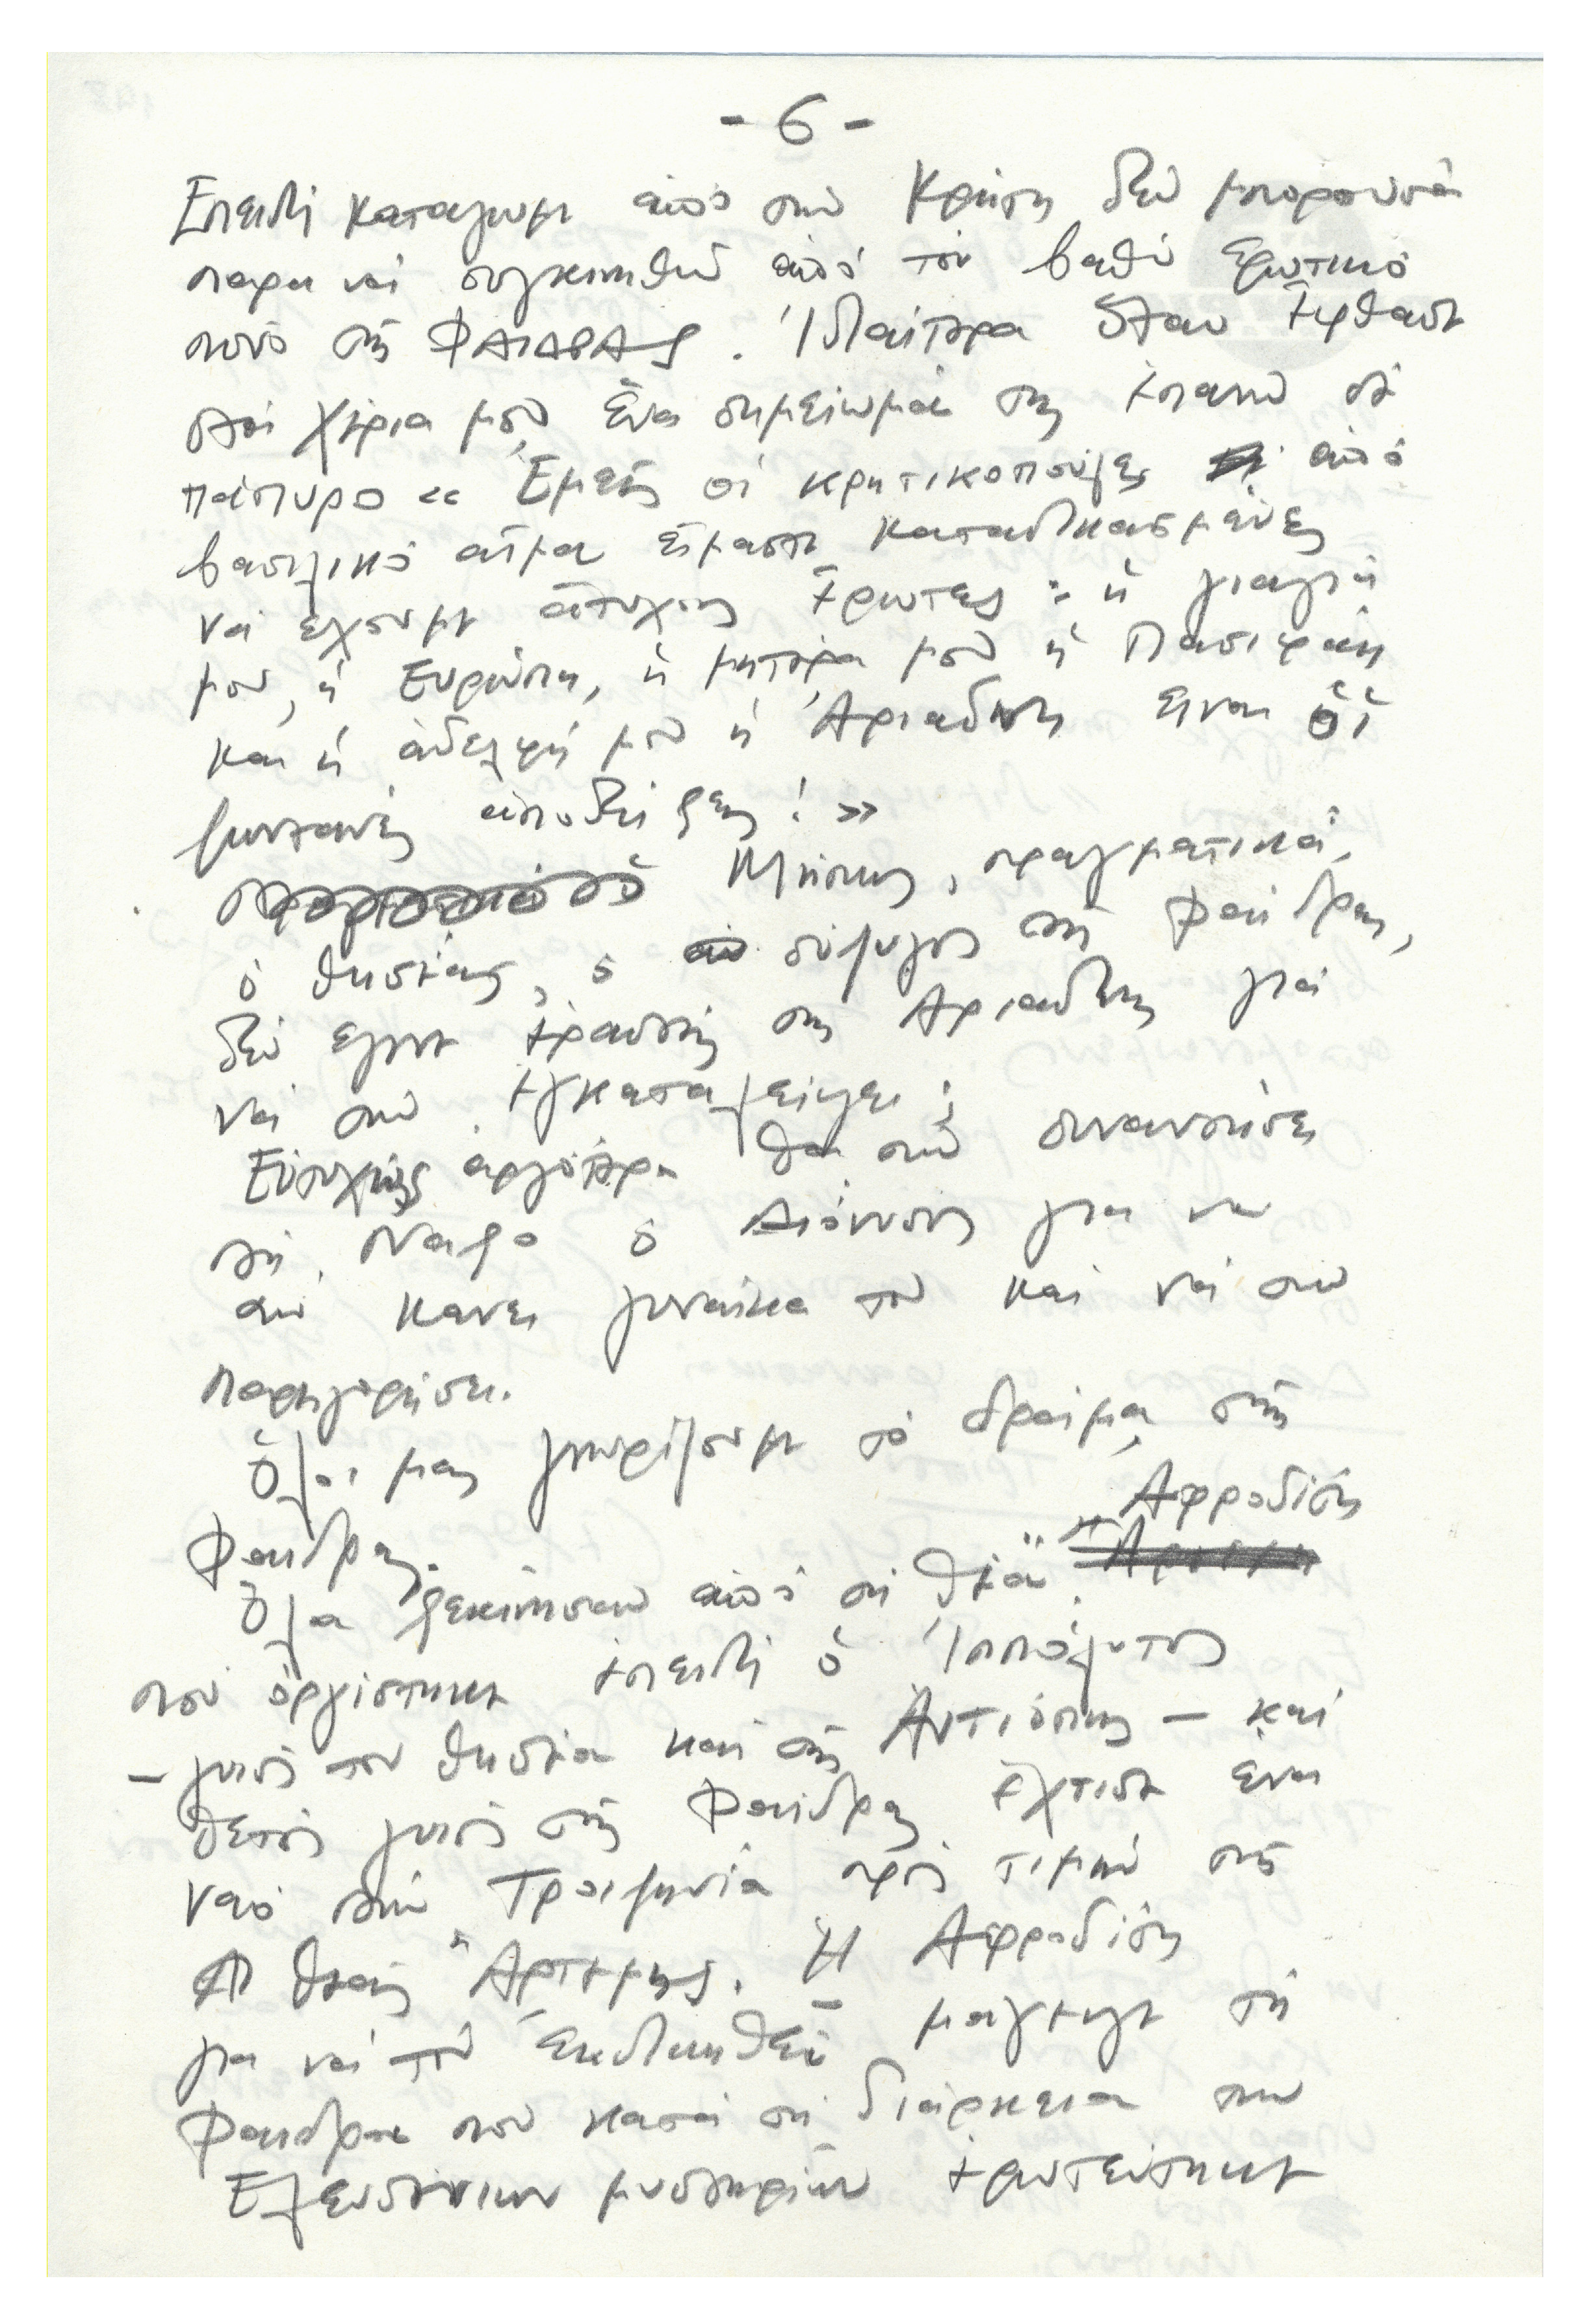 - 6 -
Επειδή κατάγομε από την Κρήτη δεν μπορούσα
παρα νά συγκινηθώ από τον βαθύ ερωτικό
πόνο της ΦΑΙΔΡΑΣ. Ιδιαίτερα όταν έρθανε
στά χέρια μου ένα σημείωμά της επάνω σέ
πάπυρο « Έμείς οί κρητικοπούλες από
βασιλικό αίμα είμαστε καταδικασμένες
νά έχουμε άτυχους έρωτες : ή γιαγιά
μου, ή Ευρώπη, ή μητέρα μου ή Πασιφάη
και ή άδελφή μου ή Άριάδνη είναι οί
ζωντανές αποδείξεις ! »
Μήπως, πραγματικά,
ό Θησέας, ο σύζυγος της Φαίδρας,
δέν έγινε εραστής της Αριάδνης γιά
νά την εγκαταλείψει ;
Εύτυχώς αργότερα θα την συναντήσει
στή Νάξο ο Διόνυσος για να
την κανει γυναίκα του και νά την
παρηγορήσει.
Όλοι μας γνωρίζουμε τό δράμα της
Φαίδρας.
Όλα ξεκίνησαν από τη θεά " Αφροδίτη "
που όργίστηκε επειδή ό Ίππόλυτος
– γυιός του Θησέα και της Αντιόπης – και
θετός γυιός της Φαίδρας έχτισε ένα
ναό στην Τροιζηνία πρός τιμήν της
θεάς Άρτεμης. Ή Αφροδίτη
για νά τον εκδικηθεί μάγεψε τη
Φαίδρα που κατά τη διάρκεια των
Ελευσινίων μυστηρίων ερωτεύτηκε